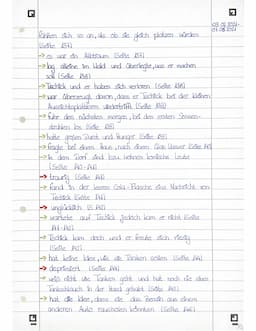 fühlen sich so an, als ob sie gleich platzen würden
(Seite 157)
→ es war ein Albtraum (Seite 157)
→ lag alleine im Wald und überlegte, was er machen
soll (Seite 158)
→ Tschick und er haben sich verloren (Seite 158)
→ war überzeugt davon, dass er Tschick bei der kleinen
Aussichtsplattform wiedertrifft (Seite 158)
→ fuhr den nächsten morgen, bei den ersten Sonnen-
strahlen los (Seite 159)
→ hatte großen Durst und Hunger (Seite 159)
→ fragte bei einem Haus, nach einem Glas Wasser (Seite
→ In dem Dorf sind bzw. leben komische Leute
(Seite
→ traurig (Seite
→ fand in der leeren Cola-Flasche eine Nachricht von
Tschick (Seite
→ unglücklich (S.
→ wartete auf Tschick jedoch kam er nicht (Seite
→ Tschick kam doch und er freute sich riesig
(Seite
→ hat keine Idee, wie sie Tanken sollen (Seite
→ deprimiert (Seite
→ weiß nicht wie Tanken geht und hat noch nie einen
Tankschlauch in der Hand gehabt (Seite
→ hat die Idee, dass sie das Benzin aus einem
anderen Auto rausholen könnten (Seite